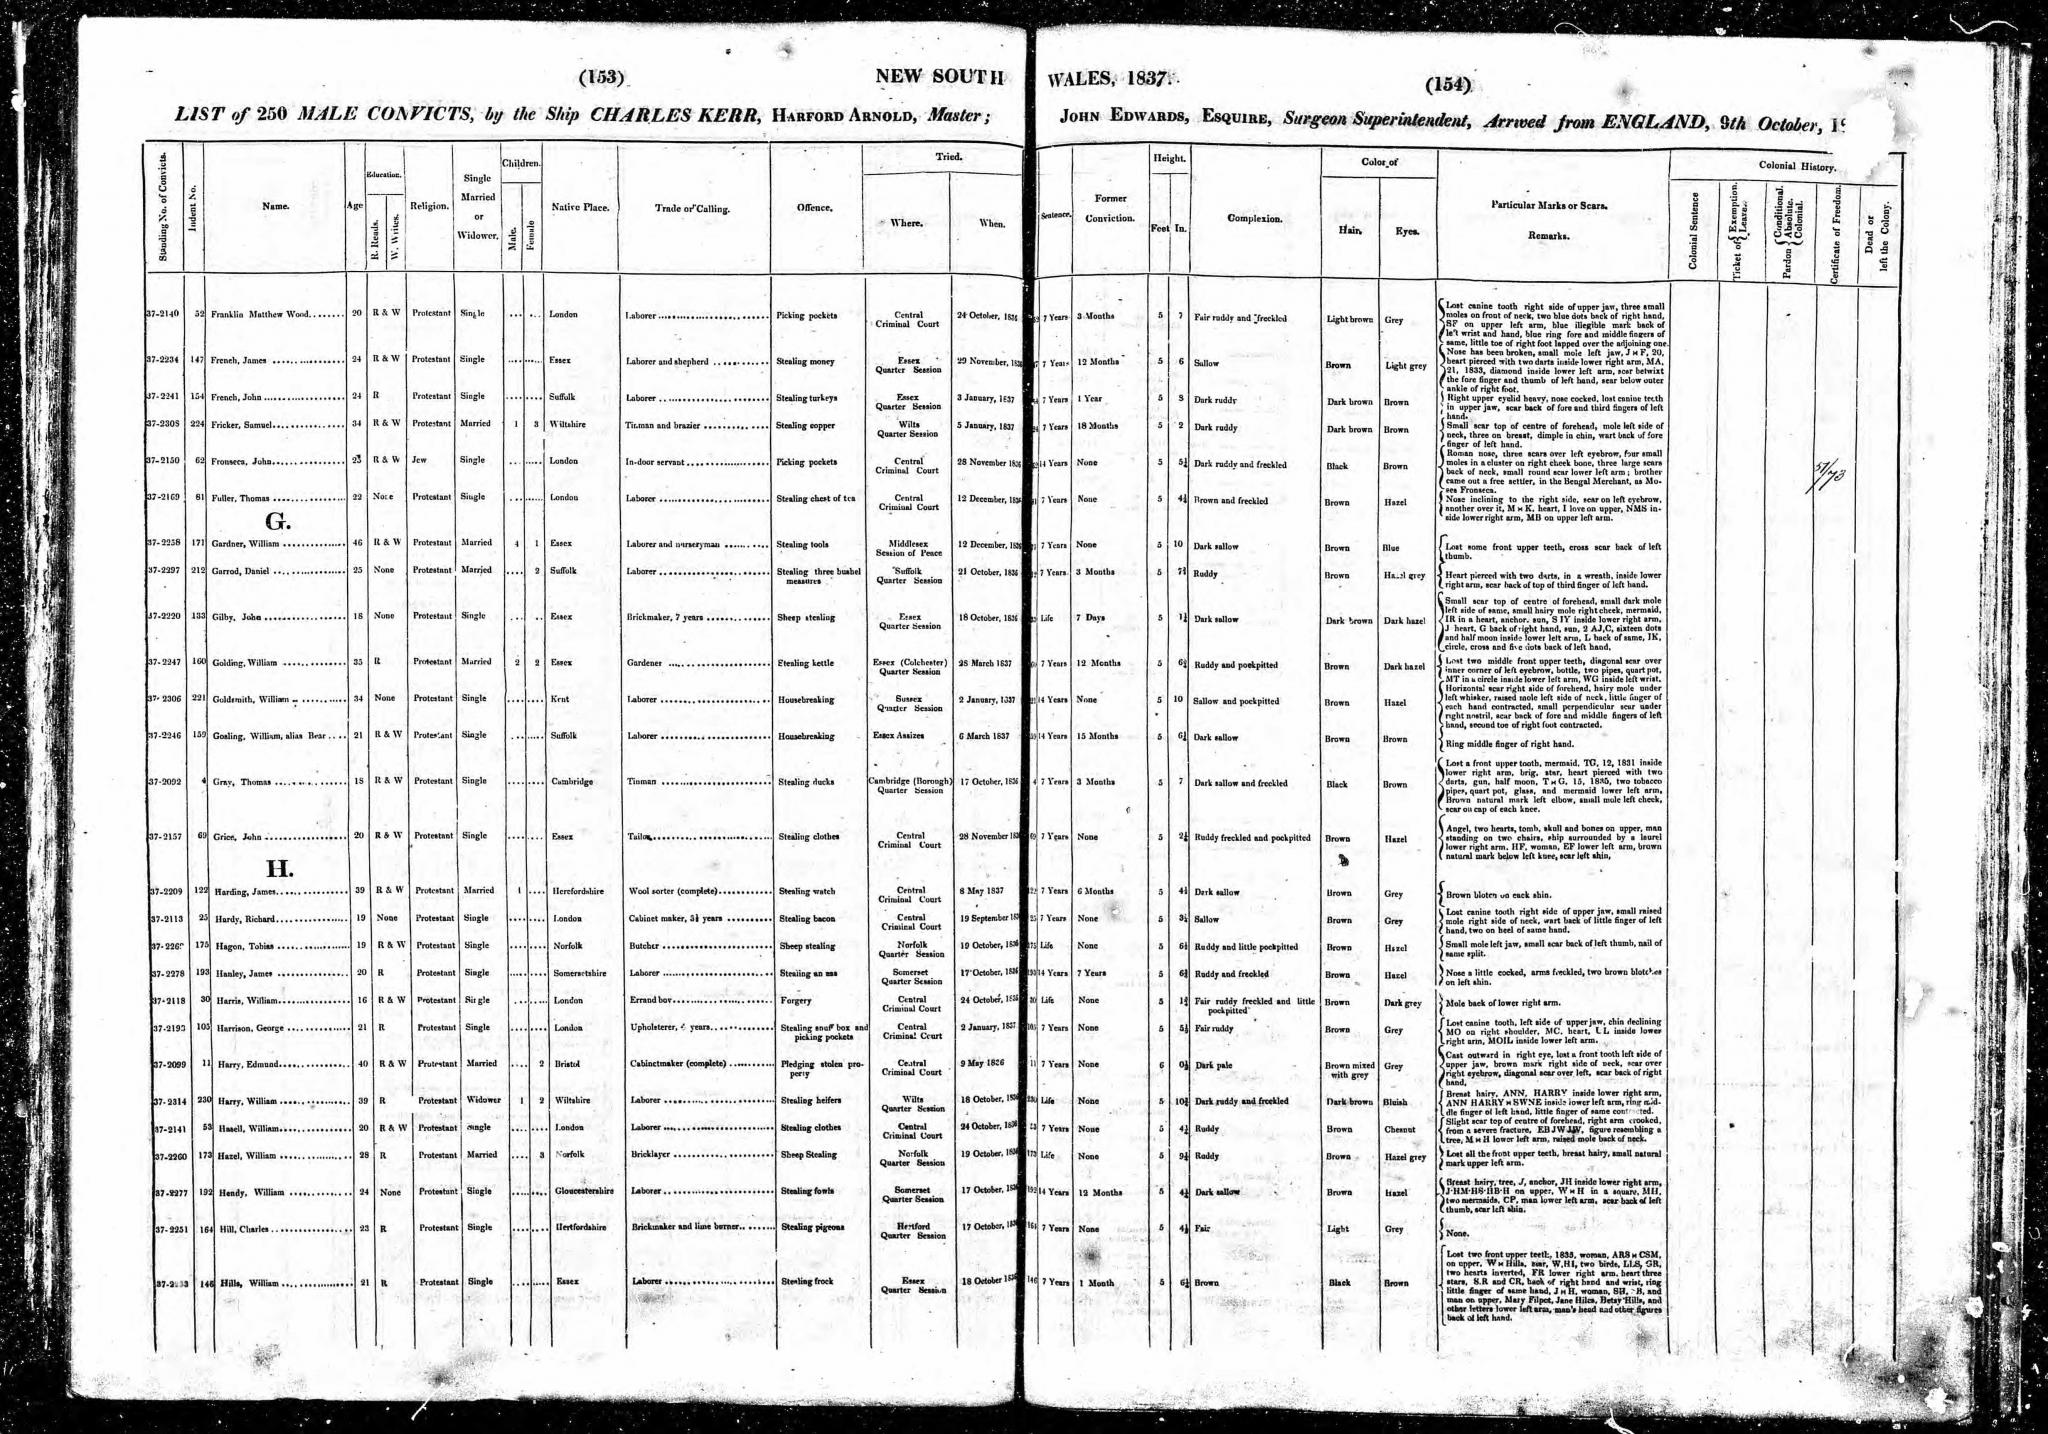 (153) NEW SOUTH WALES, 1837. (154)
LIST of 250 MALE CONVICTS, by the Ship CHARLES KERR, HARFORD ARNOLD, Master; JOHN EDWARDS, ESQUIRE, Surgeon Superintendent, Arrived from ENGLAND, 9th October,
Standing No. of Convicts. Indent No. Name. Age Education. R. Reads. W. Writes. Religion. Single Married or Widower. Children. Male. Female Native Place. Trade or Calling. Offence. Tried. Where. When. Sentence. Former Conviction. Height. Feet In. Complexion. Color of Hair. Eyes. Particular Marks or Scars. Remarks. Colonial History. Colonial Sentence Ticket of { Exemption. Leave. Pardon { Conditional. Absolute. Colonial. Certificate of Freedom. Dead or left the Colony.
37-2140 52 Franklin Matthew Wood 20 R & W Protestant Single London Laborer Picking pockets Central Criminal Court 24 October, 1836 7 Years 3 Months 5 7 Fair ruddy and freckled Light brown Grey
Lost canine tooth right side of upper jaw, three small
moles on front of neck, two blue dots back of right hand,
SF on upper left arm, blue illegible mark back of
left wrist and hand, blue ring fore and middle fingers of
same, little toe of right foot lapped over the adjoining one.
37-2234 147 French, James 24 R & W Protestant Single Essex Laborer and shepherd Stealing money Essex Quarter Session 29 November, 1836 7 Years 12 Months 5 6 Sallow Brown Light grey
Nose has been broken, small mole left jaw, J M F, 20,
heart pierced with two darts inside lower right arm, MA,
21, 1833, diamond inside lower left arm, scar betwixt
the fore finger and thumb of left hand, scar below outer
ankle of right foot.
37-2241 154 French, John 24 R Protestant Single Suffolk Laborer Stealing turkeys Essex Quarter Session 3 January, 1837 7 Years 1 Year 5 Dark ruddy Dark brown Brown
Right upper eyelid heavy, nose cocked, lost canine teeth
in upper jaw, scar back of fore and third fingers of left
hand.
37-2308 224 Fricker, Samuel 34 R & W Protestant Married 1 3 Wiltshire Tinman and brazier Stealing copper Wilts Quarter Session 5 January, 1837 7 Years 18 Months 5 2 Dark ruddy Dark brown Brown
Small scar top of centre of forehead, mole left side of
neck, three on breast, dimple in chin, wart back of fore
finger of left hand.
37-2150 62 Fonseca, John 23 R & W Jew Single London In-door servant Picking pockets Central Criminal Court 28 November 1836 14 Years None 5 5¼ Dark ruddy and freckled Black Brown
Roman nose, three scars over left eyebrow, four small
moles in a cluster on right cheek bone, three large scars
back of neck, small round scar lower left arm; brother
came out a free settler, in the Bengal Merchant, as Mo-
ses Fronseca.
51/73
37-2169 81 Fuller, Thomas 22 None Protestant Single London Laborer Stealing chest of tea Central Criminal Court 12 December, 1836 7 Years None 5 4¼ Brown and freckled Brown Hazel
Nose inclining to the right side, scar on left eyebrow,
another over it, M M K. heart, I love on upper, NMS in-
side lower right arm, MB on upper left arm.
G.
37-2258 171 Gardner, William 46 R & W Protestant Married 4 1 Essex Laborer and nurseryman Stealing tools Middlesex Session of Peace 12 December, 1836 7 Years None 5 10 Dark sallow Brown Blue
Lost some front upper teeth, cross scar back of left
thumb.
37-2297 212 Garrod, Daniel 25 None Protestant Married 2 Suffolk Laborer Stealing three bushel measures Suffolk Quarter Session 21 October, 1836 7 Years 3 Months 5 7¾ Ruddy Brown Hazel grey
Heart pierced with two darts, in a wreath, inside lower
right arm, scar back of top of third finger of left hand.
37-2220 133 Gilby, John 18 None Protestant Single Essex Brickmaker, 7 years Sheep stealing Essex Quarter Session 18 October, 1836 Life 7 Days 5 1¼ Dark sallow Dark brown Dark hazel
Small scar top of centre of forehead, small dark mole
left side of same, small hairy mole right cheek, mermaid,
IR in a heart, anchor, sun, S IY inside lower right arm,
J heart, G back of right hand, sun, 2 AJ,C, sixteen dots
and half moon inside lower left arm, L back of same, IK,
circle, cross and five dots back of left hand.
37-2247 160 Golding, William 35 R Protestant Married 2 2 Essex Gardener Stealing kettle Essex (Colchester) Quarter Session 28 March 1837 7 Years 12 Months 5 6¾ Ruddy and pockpitted Brown Dark hazel
Lost two middle front upper teeth, diagonal scar over
inner corner of left eyebrow, bottle, two pipes, quart pot,
MT in a circle inside lower left arm, WG inside left wrist.
37-2306 221 Goldsmith, William 34 None Protestant Single Kent Laborer Housebreaking Sussex Quarter Session 2 January, 1837 14 Years None 5 10 Sallow and pockpitted Brown Hazel
Horizontal scar right side of forehead, hairy mole under
left whisker, raised mole left side of neck, little finger of
each hand contracted, small perpendicular scar under
right nostril, scar back of fore and middle fingers of left
hand, second toe of right foot contracted.
37-2246 159 Gosling, William, alias Bear 21 R & W Protestant Single Suffolk Laborer Housebreaking Essex Assizes 6 March 1837 14 Years 15 Months 5 6¼ Dark sallow Brown Brown
Ring middle finger of right hand.
37-2092 4 Gray, Thomas 18 R & W Protestant Single Cambridge Tinman Stealing ducks Cambridge (Borough) Quarter Session 17 October, 1836 4 7 Years 3 Months 5 7 Dark sallow and freckled Black Brown
Lost a front upper tooth, mermaid, TG, 12, 1831 inside
lower right arm, brig, star, heart pierced with two
darts, gun, half moon, T M G, 15, 1835, two tobacco
pipes, quart pot, glass, and mermaid lower left arm,
Brown natural mark left elbow, small mole left cheek,
scar on cap of each knee.
37-2157 69 Grice, John 20 R & W Protestant Single Essex Tailor Stealing clothes Central Criminal Court 28 November 1836 69 7 Years None 5 2¼ Ruddy freckled and pockpitted Brown Hazel
Angel, two hearts, tomb, skull and bones on upper, man
standing on two chairs, ship surrounded by a laurel
lower right arm, HF, woman, EF lower left arm, brown
natural mark below left knee, scar left shin,
H.
37-2209 122 Harding, James 39 R & W Protestant Married 1 Herefordshire Wool sorter (complete) Stealing watch Central Criminal Court 8 May 1837 122 7 Years 6 Months 5 4¼ Dark sallow Brown Grey
Brown blotch on each shin.
37-2113 25 Hardy, Richard 19 None Protestant Single London Cabinet maker, 3½ years Stealing bacon Central Criminal Court 19 September 1836 25 7 Years None 5 3¼ Sallow Brown Grey
Lost canine tooth right side of upper jaw, small raised
mole right side of neck, wart back of little finger of left
hand, two on heel of same hand.
175 Hagon, Tobias 19 R & W Protestant Single Norfolk Butcher Sheep stealing Norfolk Quarter Session 19 October, 1836 175 Life None 5 6¼ Ruddy and little pockpitted Brown Hazel
Small mole left jaw, small scar back of left thumb, nail of
same split.
37-2278 193 Hanley, James 20 R Protestant Single Somersetshire Laborer Stealing an ass Somerset Quarter Session 17 October, 1836 193 14 Years 7 Years 5 6¾ Ruddy and freckled Brown Hazel
Nose a little cocked, arms freckled, two brown blotches
on left shin.
37-2118 30 Harris, William 16 R & W Protestant Single London Errand boy Forgery Central Criminal Court 24 October, 1836 30 Life None 5 1¾ Fair ruddy freckled and little pockpitted Brown Dark grey
Mole back of lower right arm.
37-2193 105 Harrison, George 21 R Protestant Single London Upholsterer, years Stealing snuff box and picking pockets Central Criminal Court 2 January, 1837 105 7 Years None 5 5½ Fair ruddy Brown Grey
Lost canine tooth, left side of upper jaw, chin declining
MO on right shoulder, MC, heart, LL inside lower
right arm, MOIL inside lower left arm.
37-2099 11 Harry, Edmund 40 R & W Protestant Married 2 Bristol Cabinetmaker (complete) Pledging stolen property Central Criminal Court 9 May 1836 11 7 Years None 6 0½ Dark pale Brown mixed with grey Grey
Cast outward in right eye, lost a front tooth left side of
upper jaw, brown mark right side of neck, scar over
right eyebrow, diagonal scar over left, scar back of right
hand,
37-2314 230 Harry, William 39 R Protestant Widower 1 2 Wiltshire Laborer Stealing heifers Wilts Quarter Session 18 October, 1836 230 Life None 5 10¾ Dark ruddy and freckled Dark brown Bluish
Breast hairy, ANN, HARRY inside lower right arm,
ANN HARRY M SWNE inside lower left arm, ring mid-
dle finger of left hand, little finger of same contracted.
37-2141 53 Hasell, William 20 R & W Protestant Single London Laborer Stealing clothes Central Criminal Court 24 October, 1836 53 7 Years None 5 4¼ Ruddy Brown Chesnut
Slight scar top of centre of forehead, right arm crooked,
from a severe fracture, EBJWJW, figure resembling a
tree, M M H lower left arm, raised mole back of neck.
37-2260 173 Hazel, William 28 R Protestant Married 3 Norfolk Bricklayer Sheep Stealing Norfolk Quarter Session 19 October, 1836 173 Life None 5 9¼ Ruddy Brown Hazel grey
Lost all the front upper teeth, breast hairy, small natural
mark upper left arm.
37-2277 192 Hendy, William 24 None Protestant Single Gloucestershire Laborer Stealing fowls Somerset Quarter Session 17 October, 1836 192 14 Years 12 Months 5 4¼ Dark sallow Brown Hazel
Breast hairy, tree, J, anchor, JH inside lower right arm,
J·HM·HS·HB·H on upper, W M H in a square, MH,
two mermaids, CP, man lower left arm, scar back of left
thumb, scar left shin.
37-2251 164 Hill, Charles 23 R Protestant Single Hertfordshire Brickmaker and lime burner Stealing pigeons Hertford Quarter Session 17 October, 1836 164 7 Years None 5 4½ Fair Light Grey
None.
146 Hills, William 21 R Protestant Single Essex Laborer Stealing frock Essex Quarter Session 18 October 1836 146 7 Years 1 Month 5 6¼ Brown Black Brown
Lost two front upper teeth, 1835, woman, ARS M CSM,
on upper, W M Hills, star, W,HI, two birds, LLS, GR,
two hearts inverted, FR lower right arm, heart three
stars, S.R and CR, back of right hand and wrist, ring
little finger of same hand, J M H, woman, SH, B, and
man on upper, Mary Filpot, Jane Hiles, Betsy Hills, and
other letters lower left arm, man's head and other figures
back of left hand.